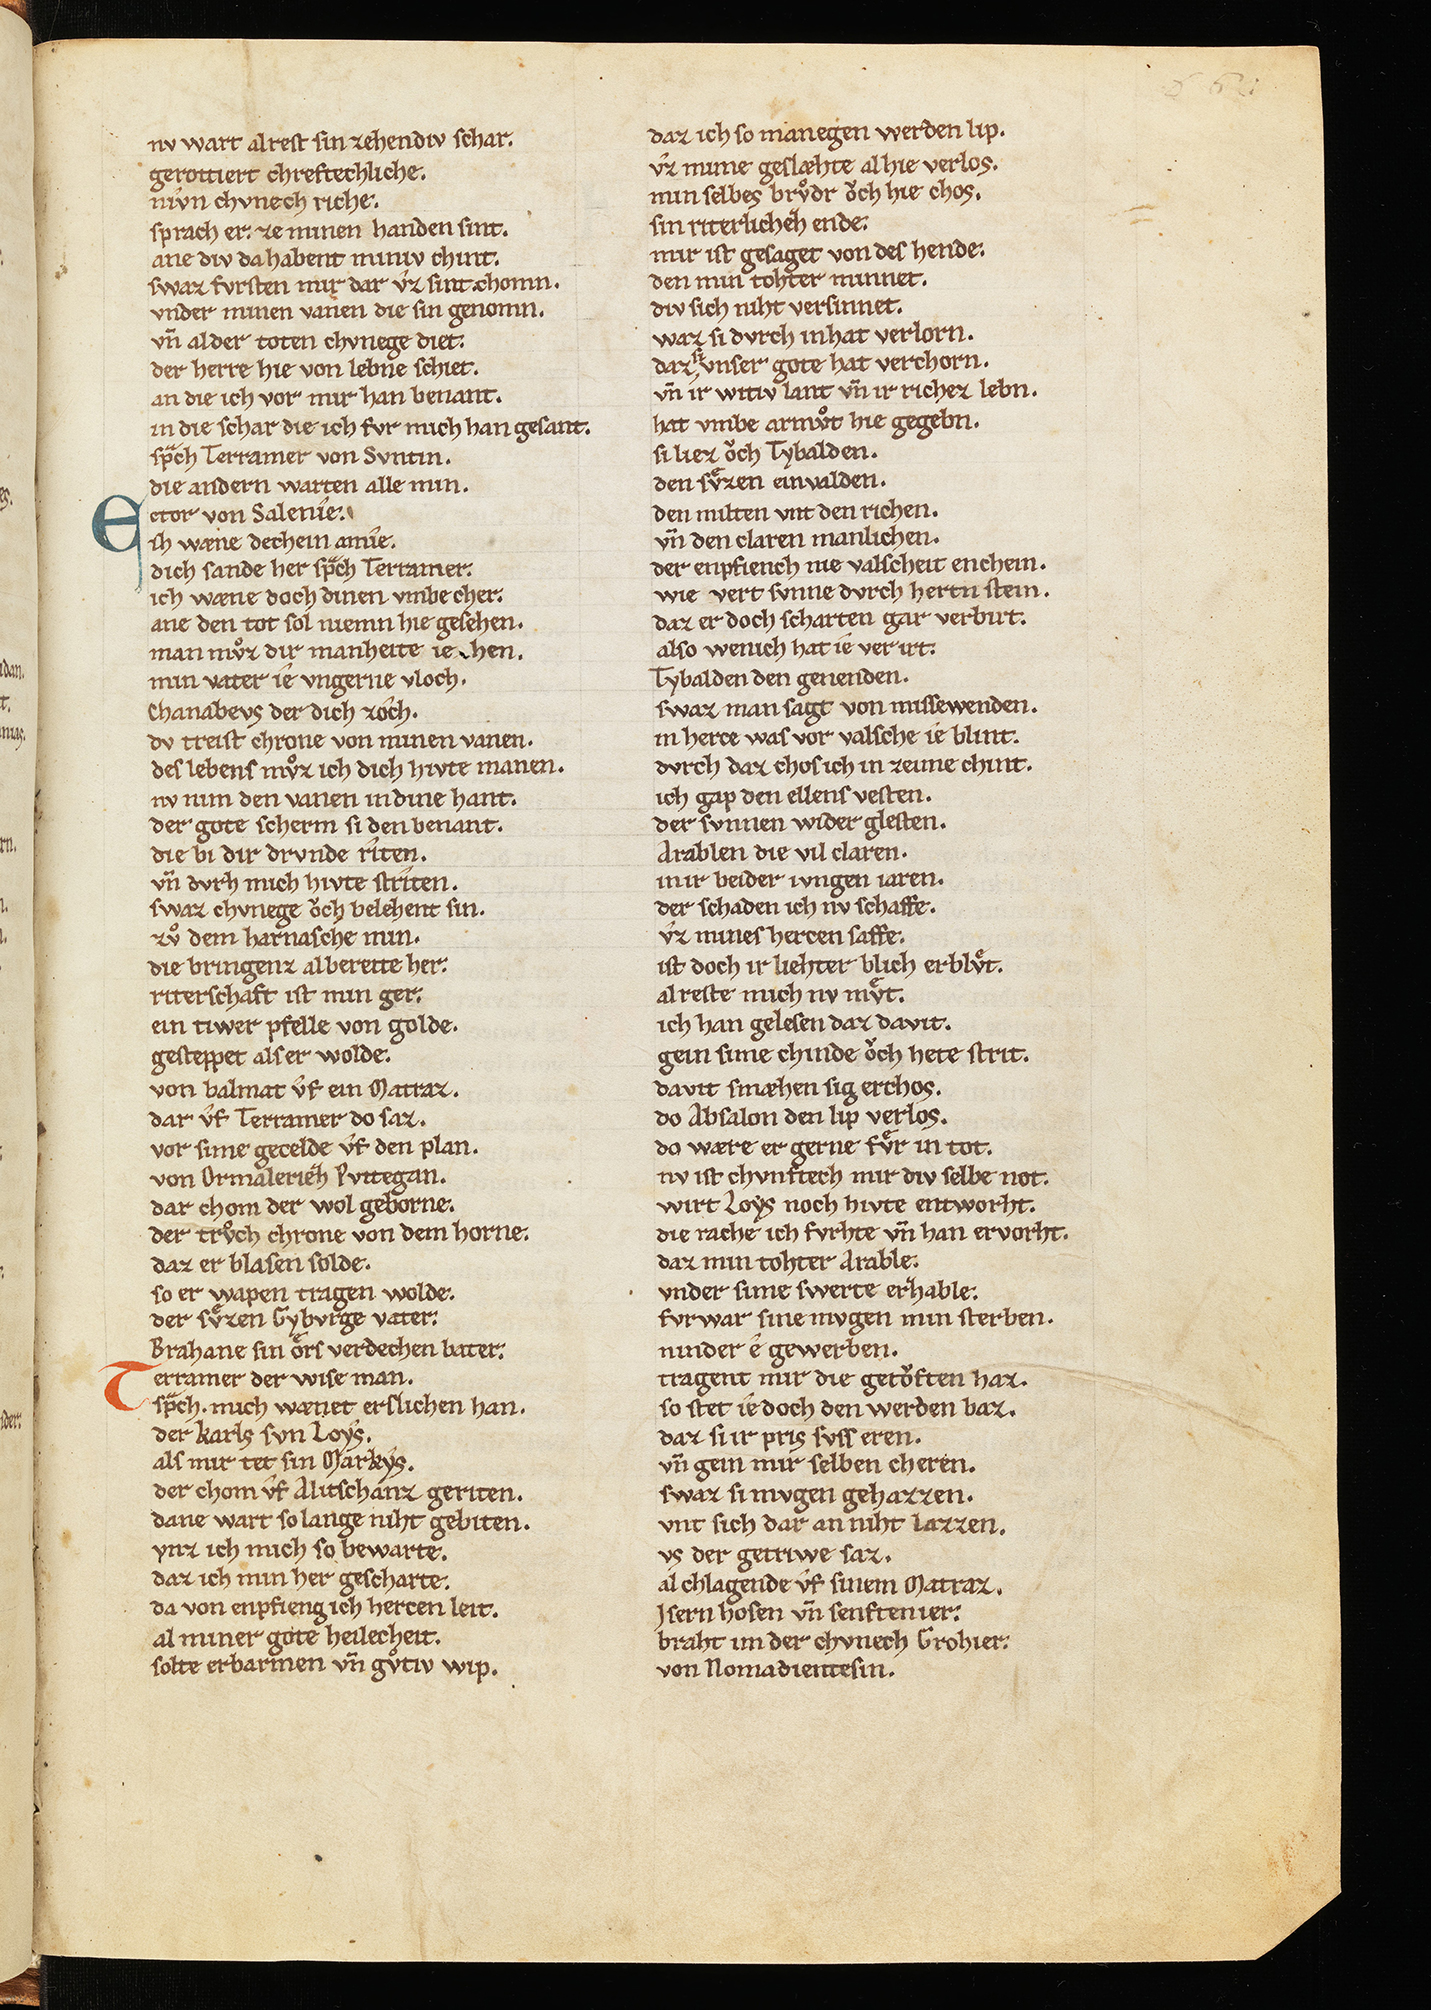 nv wart alrest sin zehendiv schar.
gerottiert chreftechliche.
nivn chvnech riche.
sprach er. ze minen handen sint.
ane div da habent miniv chint.
swaz fvrsten mir dar v̂z sint chomn.
vnder minen vanen die sin genomn.
vn̄ al der toten chvnege diet.
der herre hie von lebne schiet.
an die ich vor mir han benant.
in die schar die ich fvr mich han gesant.
spͣch Terramer von Svntin.
die andern warten alle min.
Ector von Salenîe.
ich wæne dechein amîe.
dich sande her spͣch Terramer.
ich wæne doch dinen vmbe cher.
ane den tot sol niemn hie gesehen.
man mvͦz dir manheite iehen.
min vater îe vngerne vloch.
Chanabevs der dich zôch.
dv treist chrone von minen vanen.
des lebens mvͦz ich dich hivte manen.
nv nim den vanen in dine hant.
der gote scherm si den benant.
die bi dir drvnde rîten.
vn̄ dvrh mich hivte strîten.
swaz chvnege oͮch belehent sin.
zvͦ dem harnasche min.
die bringenz al bereite her.
riterschaft ist min ger.
ein tiwer pfelle von golde.
gesteppet als er wolde.
von palmat v̂f ein Matraz.
dar v̂f Terramer do saz.
vor sime gecelde v̂f den plan.
von Ormalerieh Pvttegan.
dar chom der wol geborne.
der trvͦch chrone von dem horne.
daz er blasen solde.
so er wapen tragen wolde.
der svͤzen Gybvrge vater.
Brahane sin örs verdechen bater.
Terramer der wise man.
spͣch. mich wænet erslichen han.
der karls svn Loys.
als mir tet sin Markys.
der chom v̂f Alitschanz geriten.
dane wart so lange niht gebiten.
vnz ich mich so bewarte.
daz ich min her gescharte.
da von enpfieng ich hercen leit.
al miner gote heilecheit.
solte erbarmen vn̄ gvͦtiv wip.
daz ich so manegen werden lip.
v̂z mime geslæhte al hie verlos.
min selbes brvͦdr oͮch hie chos.
sin riterlicheh ende.
mir ist gesaget von des hende.
den min tohter minnet.
div sich niht versinnet.
waz si dvrch in hat verlorn.
daz si vnser gote hat verchorn.
vn̄ ir witiv lant vn̄ ir richez lebn.
hat vmbe armvͦt hie gegebn.
si liez oͮch Tybalden.
den svͤzen einvalden.
den milten vnt den richen.
vn̄ den claren manlichen.
der enpfiench nie valscheit enchein.
wie vert svnne dvrch hertn stein.
daz er doch scharten gar verbirt.
also wenich hat îe verirt.
Tybalden den genenden.
swaz man sagt von missewenden.
in herce was vor valsche îe blint.
dvrch daz chos ich in zeime chint.
ich gap den ellens vesten.
der svnnen wider glesten.
Arablen die vil claren.
mir beider ivngen iaren.
der schaden ich nv schaffe.
v̂z mines hercen saffe.
ist doch ir liehter blich erblvͤt.
alreste mich nv mvͤt.
ich han gelesen daz davit.
gein sime chinde oͮch hete strit.
davit smæhen sig erchos.
do Absalon den lip verlos.
do wære er gerne fvͤr in tot.
nv ist chvnftech mir div selbe not.
wirt Loys noch hivte entworht.
die rache ich fvrhte vn̄ han ervorht.
daz min tohter Arable.
vnder sime swerte erhable.
fvrwar sine mvgen min sterben.
ninder ê gewerben.
tragent mir die getoͮften haz.
so stet îe doch den werden baz.
daz si ir pris svss eren.
vn̄ gein mir selben cheren.
swaz si mvgen gehazzen.
vnt sich dar an niht lazzen.
vs der getriwe saz.
al chlagende v̂f sinem Matraz.
Jsern hosen vn̄ senftenier.
braht im der chvnech Grohier.
von Nomadientesin.